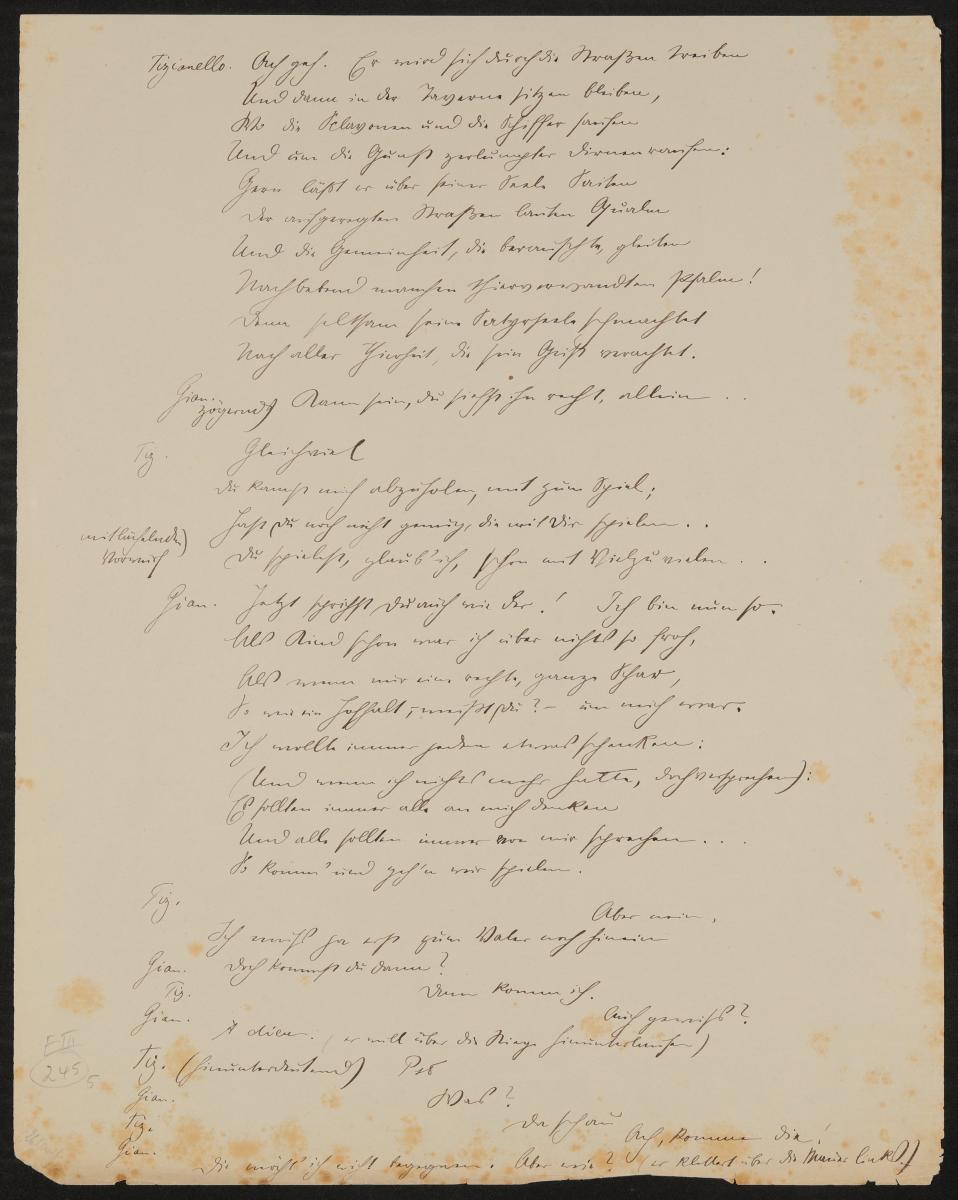 Tizianello. Ach geh. Er wird sich durch die Straßen treiben
Und dann in der Taverne sitzen bleiben,
Wo die Sclavonen und die Schiffer saufen
Und um die Gunst zerlumpter Dirnen raufen:
Gern läßt er über seiner Seele Saiten
Der aufgeregten Straßen lauten Qualm
Und die Gemeinheit, die berauschte, gleiten
Nachbebend manchen thierverwandten Psalm!
Denn seltsam seine Satyrseele schmachtet
Nach aller Thierheit, die sein Geist verachtet.
Gian. zögernd) Kann sein, du siehst ihn recht, allein . .
Tiz. Gleichviel
Du kamst mich abzuholen, mit zum Spiel;
Hast du noch nicht genug, die mit Dir spielen . .
mit lächelndem) Vorwurf
Du spielest, glaub' ich, schon mit Vielzuvielen . .
Gian. Jetzt sprichst Du auch wie der! Ich bin nun so.
Als Kind schon war ich über nichts so froh,
Als wenn mir eine rechte, ganze Schar,
So wie ein Hofhalt, – weißt du? – um mich war.
Ich wollte immer jedem etwas schenken:
(Und wenn ich nichts mehr hatte, doch versprechen):
Es sollten immer alle an mich denken
Und alle sollten immer von mir sprechen . . .
So komm' und geh'n wir spielen.
Tiz. Aber nein,
Ich muß ja erst zum Vater noch hinein
Gian. Doch kommst du dann?
Tiz. Dann komm ich.
Gian. Auch gewiß?
Adieu. (er will über die Stiege hinunterlaufen)
Tiz. (hinunterdeutend) Pst
Gian. Was?
Tiz. Da schau
Gian. Ach, komme die!
Die möcht' ich nicht begegnen. Aber wie? (er klettert über die Mauer links.)
E III
245
5